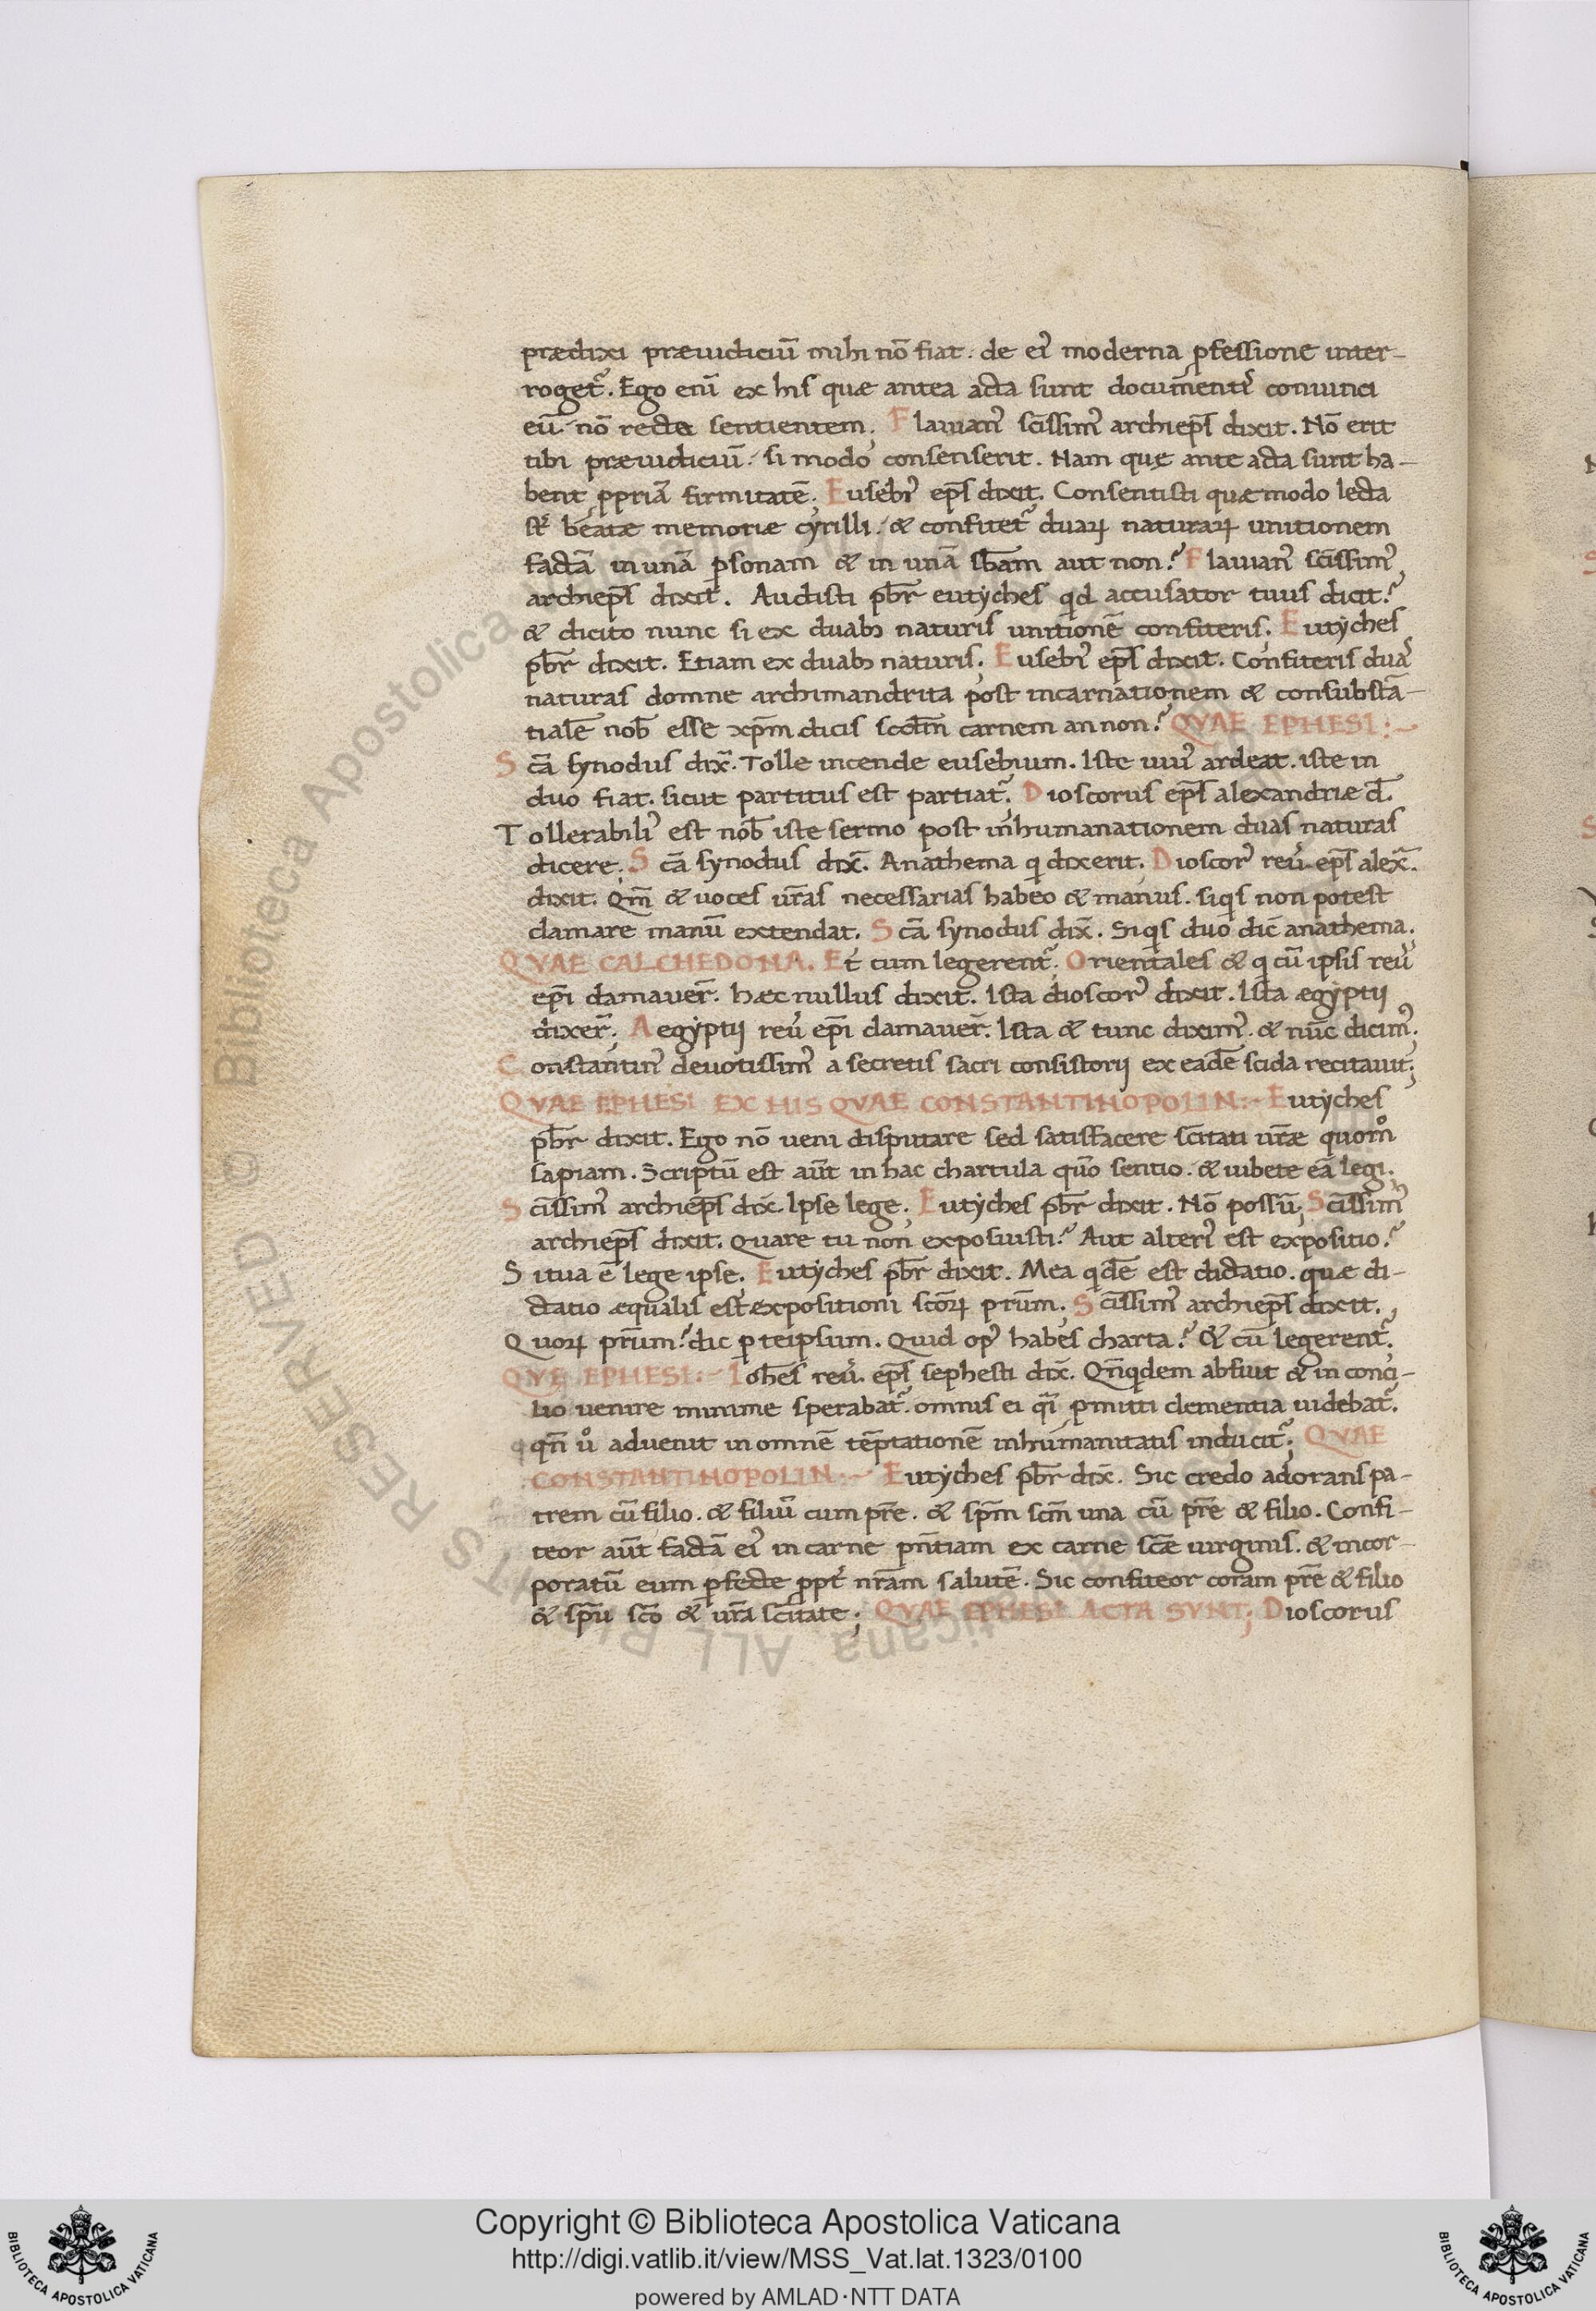 prædixi præiudiciũ mihi nõ fiat. de ei᾽ moderna ꝓfessione inter-
roget᷑. Ego enĩ ex his quæ antea acta sunt documẽnti᾽ conuinci
eũ nõ recte sentientem; Flauian᾽ sc̃issim᾽ archiep̃s dixit. Nõ erit
tibi præiudiciũ. si modo consenserit. Nam quę ante acta sunt ha-
bent ꝓpriã firmitatẽ; Eusebi᾽ ep̃s dixit. Consentisti quæ modo lecta
st̃ beatæ memoriæ cyrilli. & confitet᷑ duaꝝ naturaꝝ unitionem
factã in unã ꝑsonam & in unã sb̃am aut non? Flauian᾽ sc̃issim᾽
archiep̃s dixit. Audisti pb̃r eutyches qd accusator tuus dicit?
& dicito nunc si ex duabꝫ naturis unitionẽ confiteris. Eutyches
pb̃r dixit. Etiam ex duabꝫ naturis; Eusebi᾽ ep̃s dixit. Confiteris dua᾽
naturas domne archimandrita post incarnationem & consubstã-
tialẽ nob̃ esse xp̃m dicis scd̃m carnem an non? QVAE EPHESI:-
Sc̃a synodus dix̃. Tolle incende eusebium. Iste uiu᾽ ardeat. iste in
duo fiat. sicut partitus est partiat᷑; Dioscorus ep̃s alexandriæ d̃.
Tollerabili᾽ est nob̃ iste sermo post inhumanationem duas naturas
dicere; Sc̃a synodus dix̃. Anathema q dixerit. Dioscor᾽ reu᾽ ep̃s alex̃.
dixit. Qm̃ & uoces ur̃as necessarias habeo & manus. siqs non potest
clamare manũ extendat. Sc̃a synodus dix̃. Siqs duo dic̃ anathema.
QVAE CALCHEDONA. Et cum legerent᷑. Orientales & q cũ ipsis reu᾽
ep̃i clamauer̃. hæc nullus dixit. Ista dioscor᾽ dixit. Ista ægyptij
dixer̃; Aegyptij reu᾽ ep̃i clamauer̃. Ista & tunc dixim᾽. & nũc dicim᾽;
Constantin᾽ deuotissim᾽ a secretis sacri consistorij ex eadẽ scida recitauit;
QVAE EPHESI EX HIS QVAE CONSTANTINOPOLIN:- Eutyches
pb̃r dixit. Ego nõ ueni disputare sed satisfacere sc̃itati ur̃æ quomᵒ
sapiam. Scriptũ est aũt in hac chartula quõ sentio. & iubete eã legi;
Sc̃issim᾽ archiep̃s dix̃. Ipse lege; Eutyches pb̃r dixit. Nõ possũ; Sc̃issim᾽
archiep̃s dixit. Quare tu non exposuisti? Aut alteri᾽ est expositio?
Si tua ẽ lege ipse. Eutyches pb̃r dixit. Mea qdẽ est dictatio. quæ di-
ctatio æqualis est expositioni sc̃oꝝ pr̃um; Sc̃issim᾽ archiep̃s dixit.
Quoꝝ pr̃um? dic ꝑ teipsum. Quid op᾽ habes charta? & cũ legerent᷑;
QVE EPHESI:- Ioh̃es reu᾽. ep̃s sephesti dix̃. Qñqdem abfuit & in conci-
lio uenire minime sperabat᷑. omnis ei qsĩ ꝑmitti clementia uidebat᷑.
qñ uᵒ aduenit in omnẽ tẽptationẽ inhumanitatis inducit᷑; QVAE
CONSTANTINOPOLIN:- Eutyches pb̃r dix̃. Sic credo adorans pa-
trem cũ filio. & filiũ cum pr̃e. & sp̃m sc̃m una cũ pr̃e & filio. Confi-
teor aũt factã ei᾽ in carne pñtiam ex carne sc̃æ uirginis. & incor-
poratũ eum ꝑfecte ꝓpt᾽ nr̃am salutẽ. Sic confiteor coram pr̃e & filio
& sp̃u sc̃o & ur̃a sc̃itate; QVAE EPHESI ACTA SVNT; Dioscorus
© Biblioteca Apostolica Vaticana ALL RIGHTS RESERVED
Copyright © Biblioteca Apostolica Vaticana
http://digi.vatlib.it/view/MSS_Vat.lat.1323/0100
powered by AMLAD·NTT DATA
BIBLIOTECA APOSTOLICA VATICANA
BIBLIOTECA APOSTOLICA VATICANA